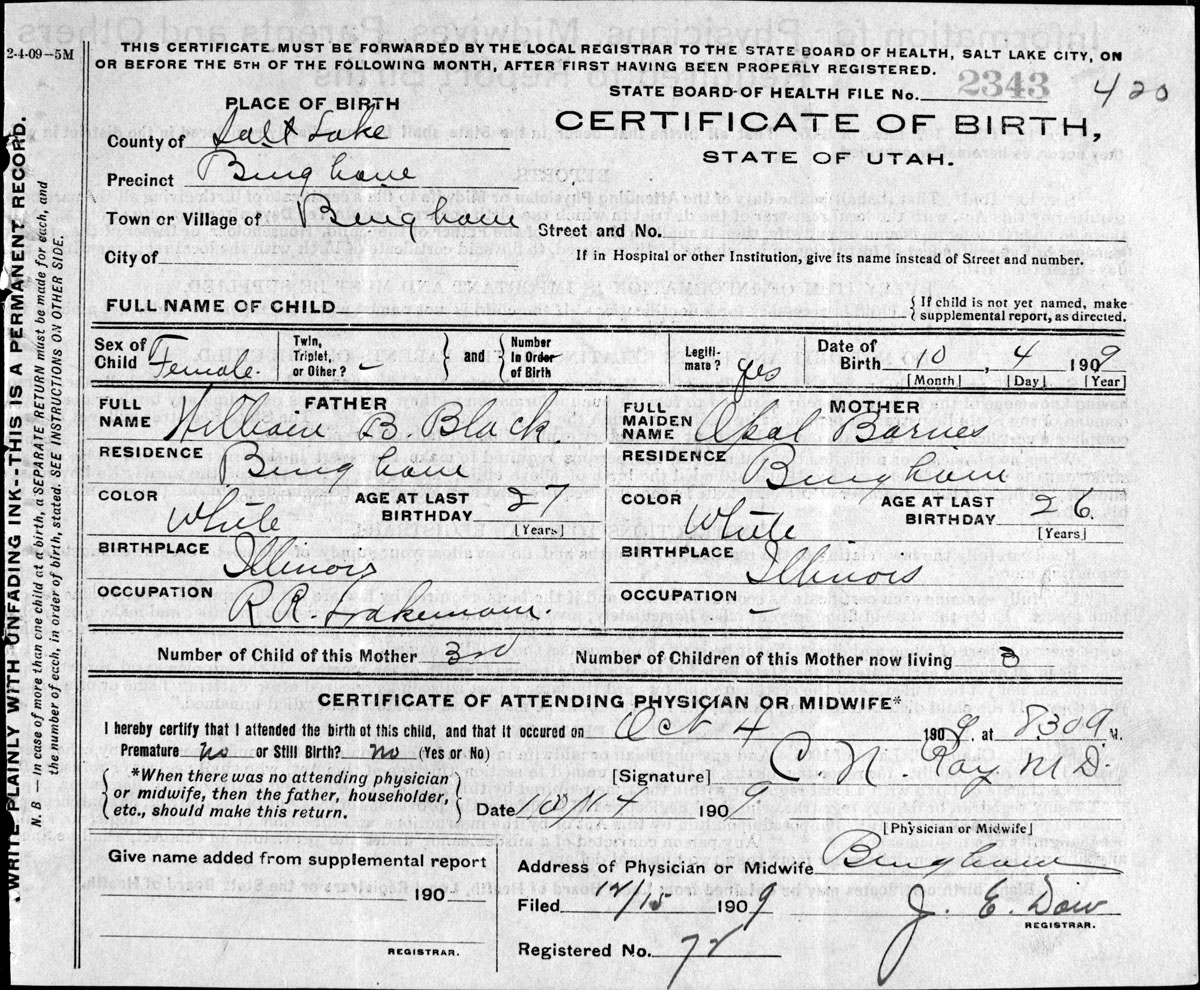 2-4-09—5M
THIS CERTIFICATE MUST BE FORWARDED BY THE LOCAL REGISTRAR TO THE STATE BOARD OF HEALTH, SALT LAKE CITY, ON
OR BEFORE THE 5TH OF THE FOLLOWING MONTH, AFTER FIRST HAVING BEEN PROPERLY REGISTERED.
STATE BOARD OF HEALTH FILE No. 2343 420
PLACE OF BIRTH
CERTIFICATE OF BIRTH,
STATE OF UTAH.
County of Salt Lake
Precinct Bingham
Town or Village of Bingham Street and No.
City of If in Hospital or other Institution, give its name instead of Street and number.
FULL NAME OF CHILD { If child is not yet named, make supplemental report, as directed.
Sex of Child Female. Twin, Triplet, or Other? - } and { Number in Order of Birth Legiti-mate? yes Date of Birth 10, 4 1909
[Month] [Day] [Year]
FATHER
FULL NAME William B. Black.
MOTHER
FULL MAIDEN NAME Opal Barnes
RESIDENCE Bingham
RESIDENCE Bingham
COLOR White AGE AT LAST BIRTHDAY 27 [Years]
COLOR White AGE AT LAST BIRTHDAY 26. [Years]
BIRTHPLACE Illinois
BIRTHPLACE Illinois
OCCUPATION R R.
OCCUPATION -
Number of Child of this Mother 3rd Number of Children of this Mother now living 3
CERTIFICATE OF ATTENDING PHYSICIAN OR MIDWIFE*
I hereby certify that I attended the birth of this child, and that it occured on Oct 4 1909. at 830 M.
Premature no or Still Birth? no (Yes or No)
{ *When there was no attending physician
or midwife, then the father, householder,
etc., should make this return. }
[Signature] C N. Ray M.D.
Date 10/14 1909
[Physician or Midwife]
Give name added from supplemental report
190
REGISTRAR.
Address of Physician or Midwife Bingham
Filed 12/15 1909 J. E. Dow
REGISTRAR.
Registered No. 72
WRITE PLAINLY WITH UNFADING INK--THIS IS A PERMANENT RECORD.
N. B — In case of more than one child at a birth, a SEPARATE RETURN must be made for each, and
the number of each, in order of birth, stated. SEE INSTRUCTIONS ON OTHER SIDE.